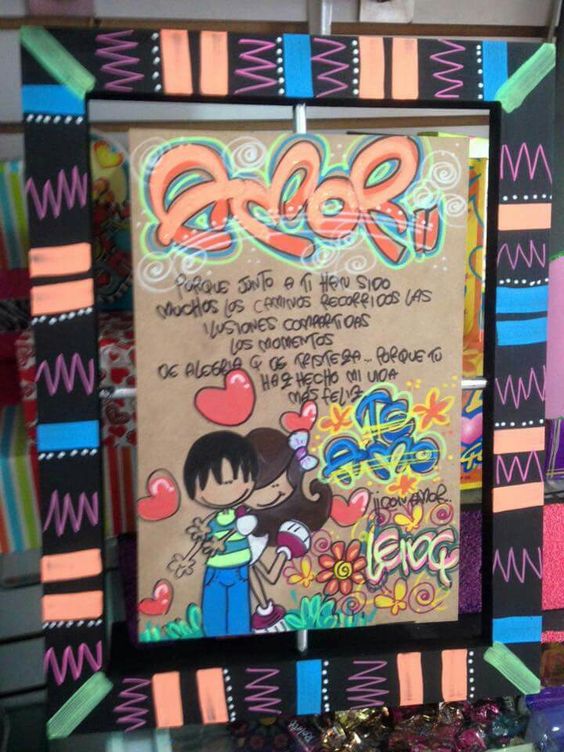 AMOR ¡¡
PORQUE JUNTO A TI HAN SIDO
MUCHOS LOS CAMINOS RECORRIDOS LAS
ILUSIONES COMPARTIDAS
LOS MOMENTOS
DE ALEGRIA Y DE TRISTEZA... PORQUE TU
HAZ HECHO MI VIDA
MÁS FELIZ
TE
AMO
¡¡CON AMOR..